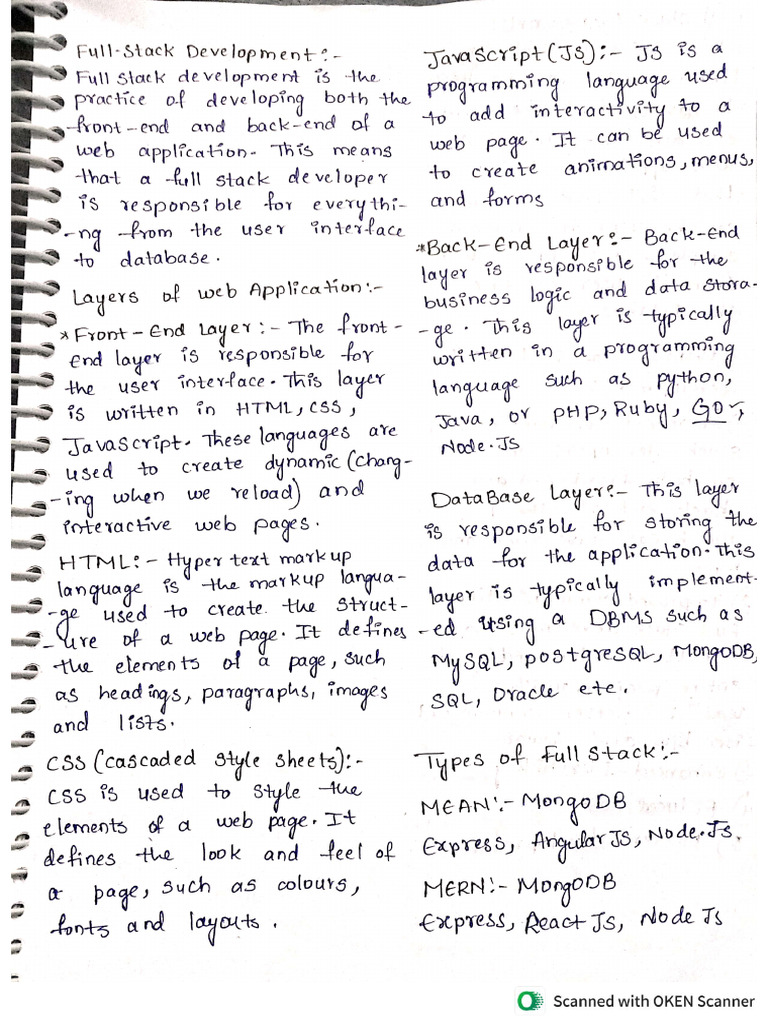 Full-Stack Development:-
Full stack development is the
practice of developing both the
front-end and back-end of a
web application. This means
that a full stack developer
is responsible for everythi-
-ng from the user interface
to database.
Layers of web Application:-
* Front-End Layer:- The front-
End layer is responsible for
the user interface. This layer
is written in HTML, CSS,
JavaScript. These languages are
used to create dynamic (chang-
-ing when we reload) and
interactive web pages.
HTML:- Hyper text markup
language is the markup langua-
-ge used to create the struct-
-ure of a web page. It defines
the elements of a page, such
as headings, paragraphs, images
and lists.
CSS (cascaded style sheets):-
CSS is used to style the
elements of a web page. It
defines the look and feel of
a page, such as colours,
fonts and layouts.
JavaScript(JS):- JS is a
programming language used
to add interactivity to a
web page. It can be used
to create animations, menus,
and forms
*Back-End Layer:- Back-End
layer is responsible for the
business logic and data stora-
-ge. This layer is typically
written in a programming
language such as python,
Java, or PHP, Ruby, GO,
Node.JS
DataBase Layer:- This layer
is responsible for storing the
data for the application. This
layer is typically implement-
-ed using a DBMS such as
MySQL, postgreSQL, MongoDB,
SQL, Oracle etc.
Types of Full Stack:-
MEAN:- MongoDB
Express, Angular JS, Node.Js.
MERN:- MongoDB
Express, React JS, Node Js
Scanned with OKEN Scanner